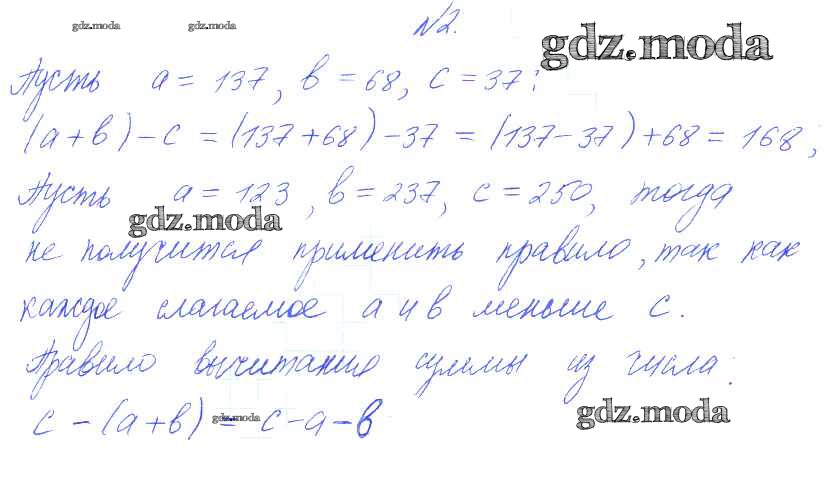 №2.
gdz.moda gdz.moda gdz.moda
Пусть a = 137, b = 68, c = 37:
(a+b)-c = (137+68)-37 = (137-37)+68 = 168;
Пусть a = 123, b = 237, c = 250, тогда
gdz.moda
не получится применить правило, так как
каждое слагаемое a и b меньше c.
Правило вычитания суммы из числа:
c - (a+b) = c-a-b
gdz.moda gdz.moda